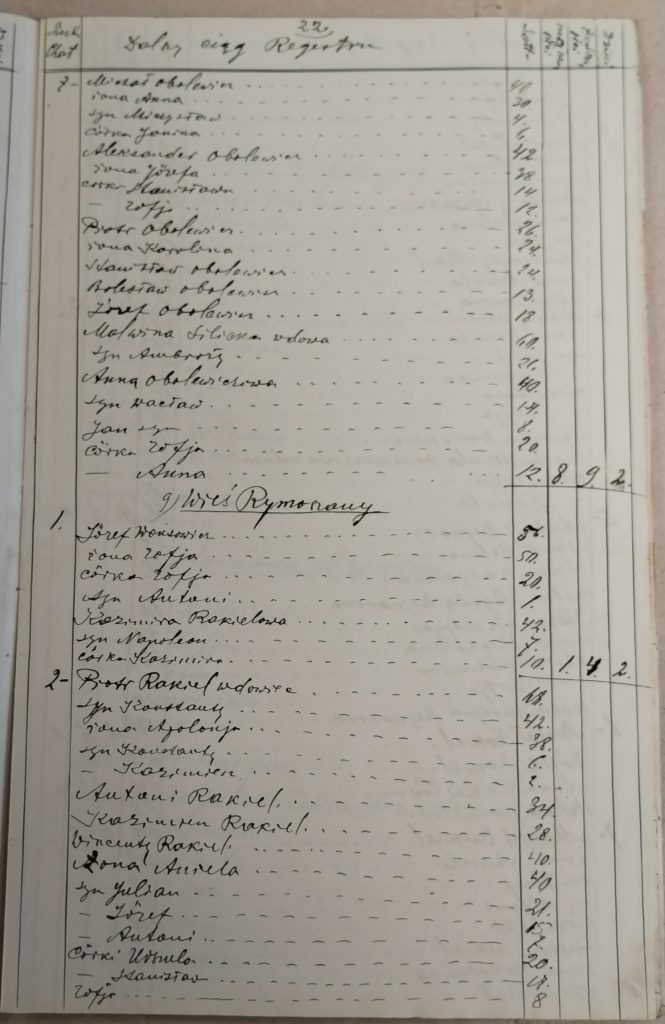 22.
Dalszy ciąg Registru
Liczba Chat
Lata
7- Michał Obolewicz 40
żona Anna 30
syn Mieczysław 4.
córka Janina 6
Aleksander Obolewicz 42
żona Józefa 38
córka Stanisława 14
— Zofja 12
Piotr Obolewicz 26
żona Karolina 24
Stanisław Obolewicz 24
Bolesław Obolewicz 13.
Józef Obolewicz 18
Malwina Silicka wdowa 60.
syn Ambroży 21.
Anna Obolewiczowa 40.
syn Wacław 14.
Jan syn 8.
córka Zofja 20.
— Anna 12. 8. 9. 2.
9) Wieś Rymoszany
1. Józef Wąsowicz 56.
żona Zofja 50.
córka Zofja 20.
syn Antoni 1.
Kazimira Rakielowa 42.
syn Napoleon 7.
córka Kazimira 10. 1. 4 2.
2- Piotr Rakiel wdowiec 68.
syn Konstanty 42.
żona Apolonja 38.
syn Konstanty 6.
— Kazimierz 2.
Antoni Rakiel. 34
Kazimierz Rakiel. 28.
Wincenty Rakiel. 40.
żona Aniela 40
syn Julian 21.
— Józef
— Antoni
córki Urszula 20.
— Stanisław
Zofja 8